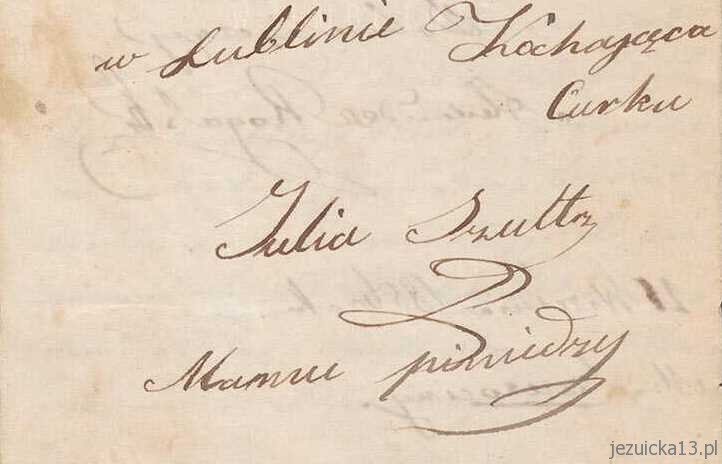 w Lublinie Kochająca
Curku
Julia Szultz
Mamu piniedzy
jezuicka13.pl